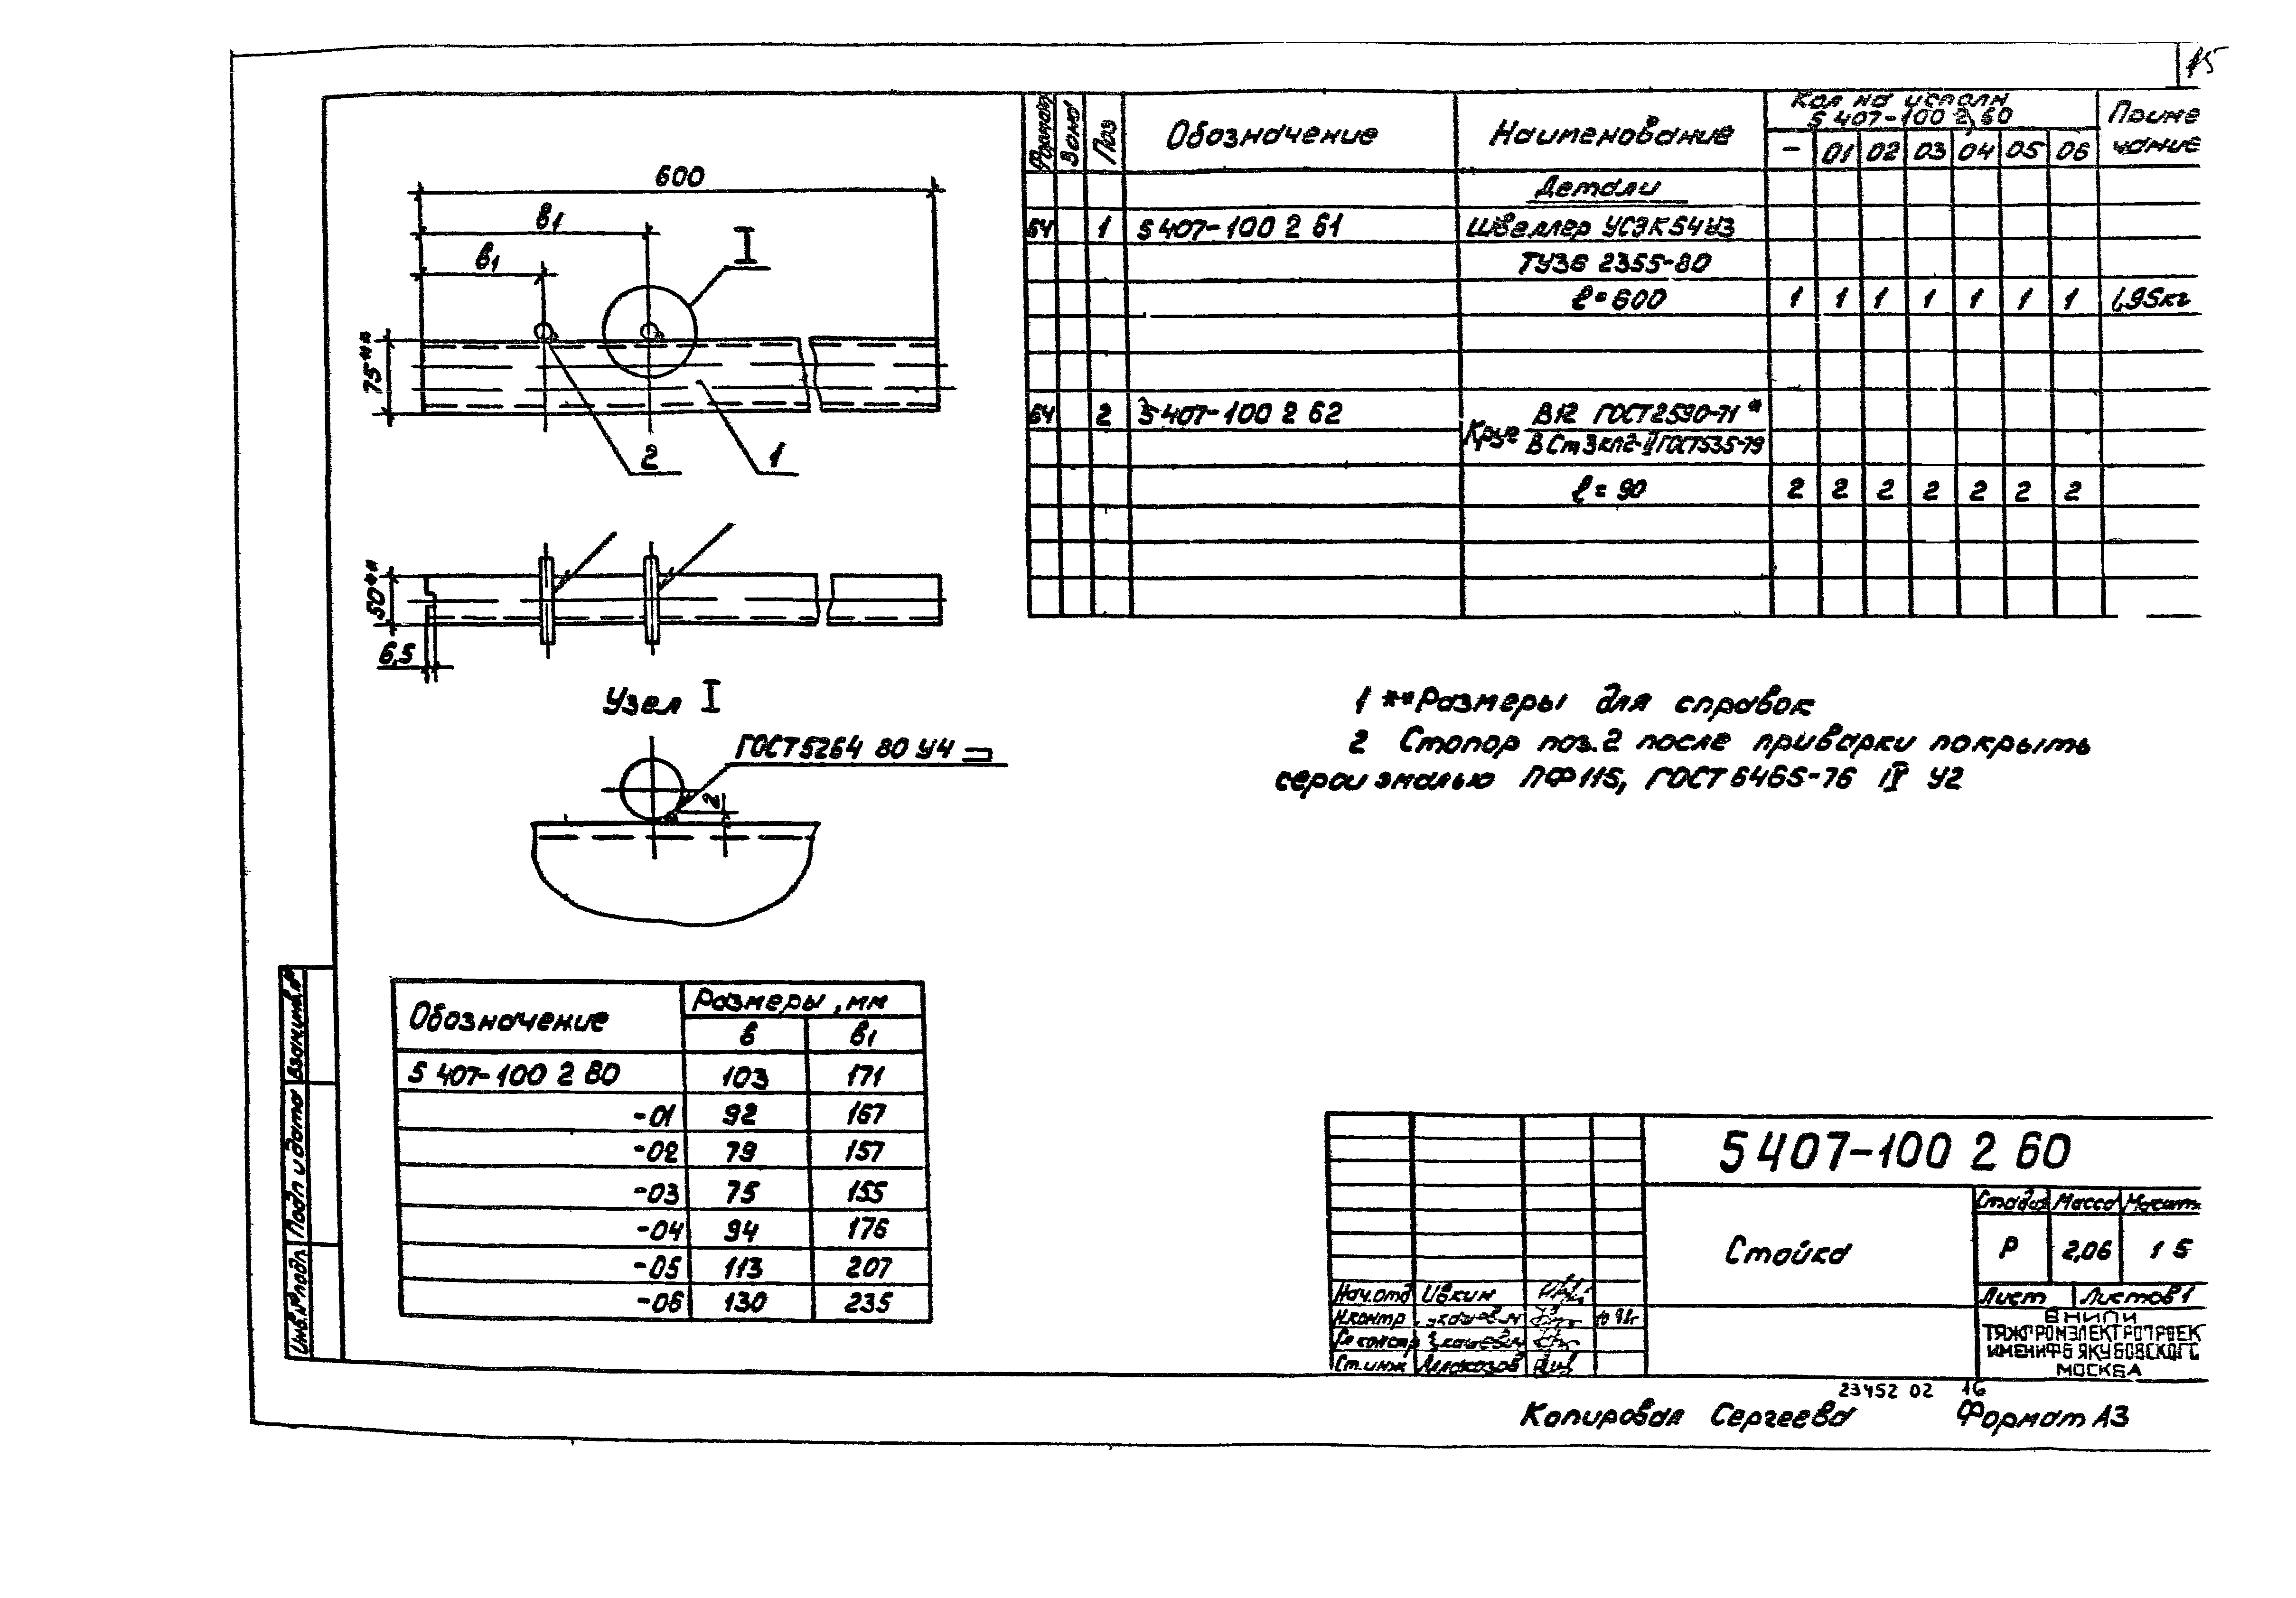 15
600
в1
в1
I
75**
2
1
50**
6,5
Узел I
ГОСТ 5264 80 У4
2
Формат
Зона
Поз
Обозначение
Наименование
Кол на исполн
5 407-100 2 60
Приме
чание
- 01 02 03 04 05 06
Детали
БЧ 1 5 407-100 2 61 Швеллер УСЭК54У3
ТУ36 2355-80
ℓ=600 1 1 1 1 1 1 1 1,95кг
БЧ 2 5 407-100 2 62 Круг В12 ГОСТ 2590-71*
В Ст3кп2-II ГОСТ 535-79
ℓ= 90 2 2 2 2 2 2 2
1 **Размеры для справок
2 Стопор поз.2 после приварки покрыть
серой эмалью ПФ115, ГОСТ 6465-76 IV У2
Обозначение Размеры, мм
в в1
5 407-100 2 80 103 171
-01 92 167
-02 79 157
-03 75 155
-04 94 176
-05 113 207
-06 130 235
Взам инв.№
Подп и дата
Инв.№ подл.
5 407-100 2 60
Стойка
Стадия Масса Масшт
Р 2,06 1 5
Лист Листов 1
Нач.отд Ивкин
Н.контр
Гл констр
Ст.инж
ВНИПИ
ТЯЖПРОМЭЛЕКТРОПРОЕКТ
ИМЕНИ Ф Б ЯКУБОВСКОГО
МОСКВА
23452 02 16
Копировал Сергеева Формат А3